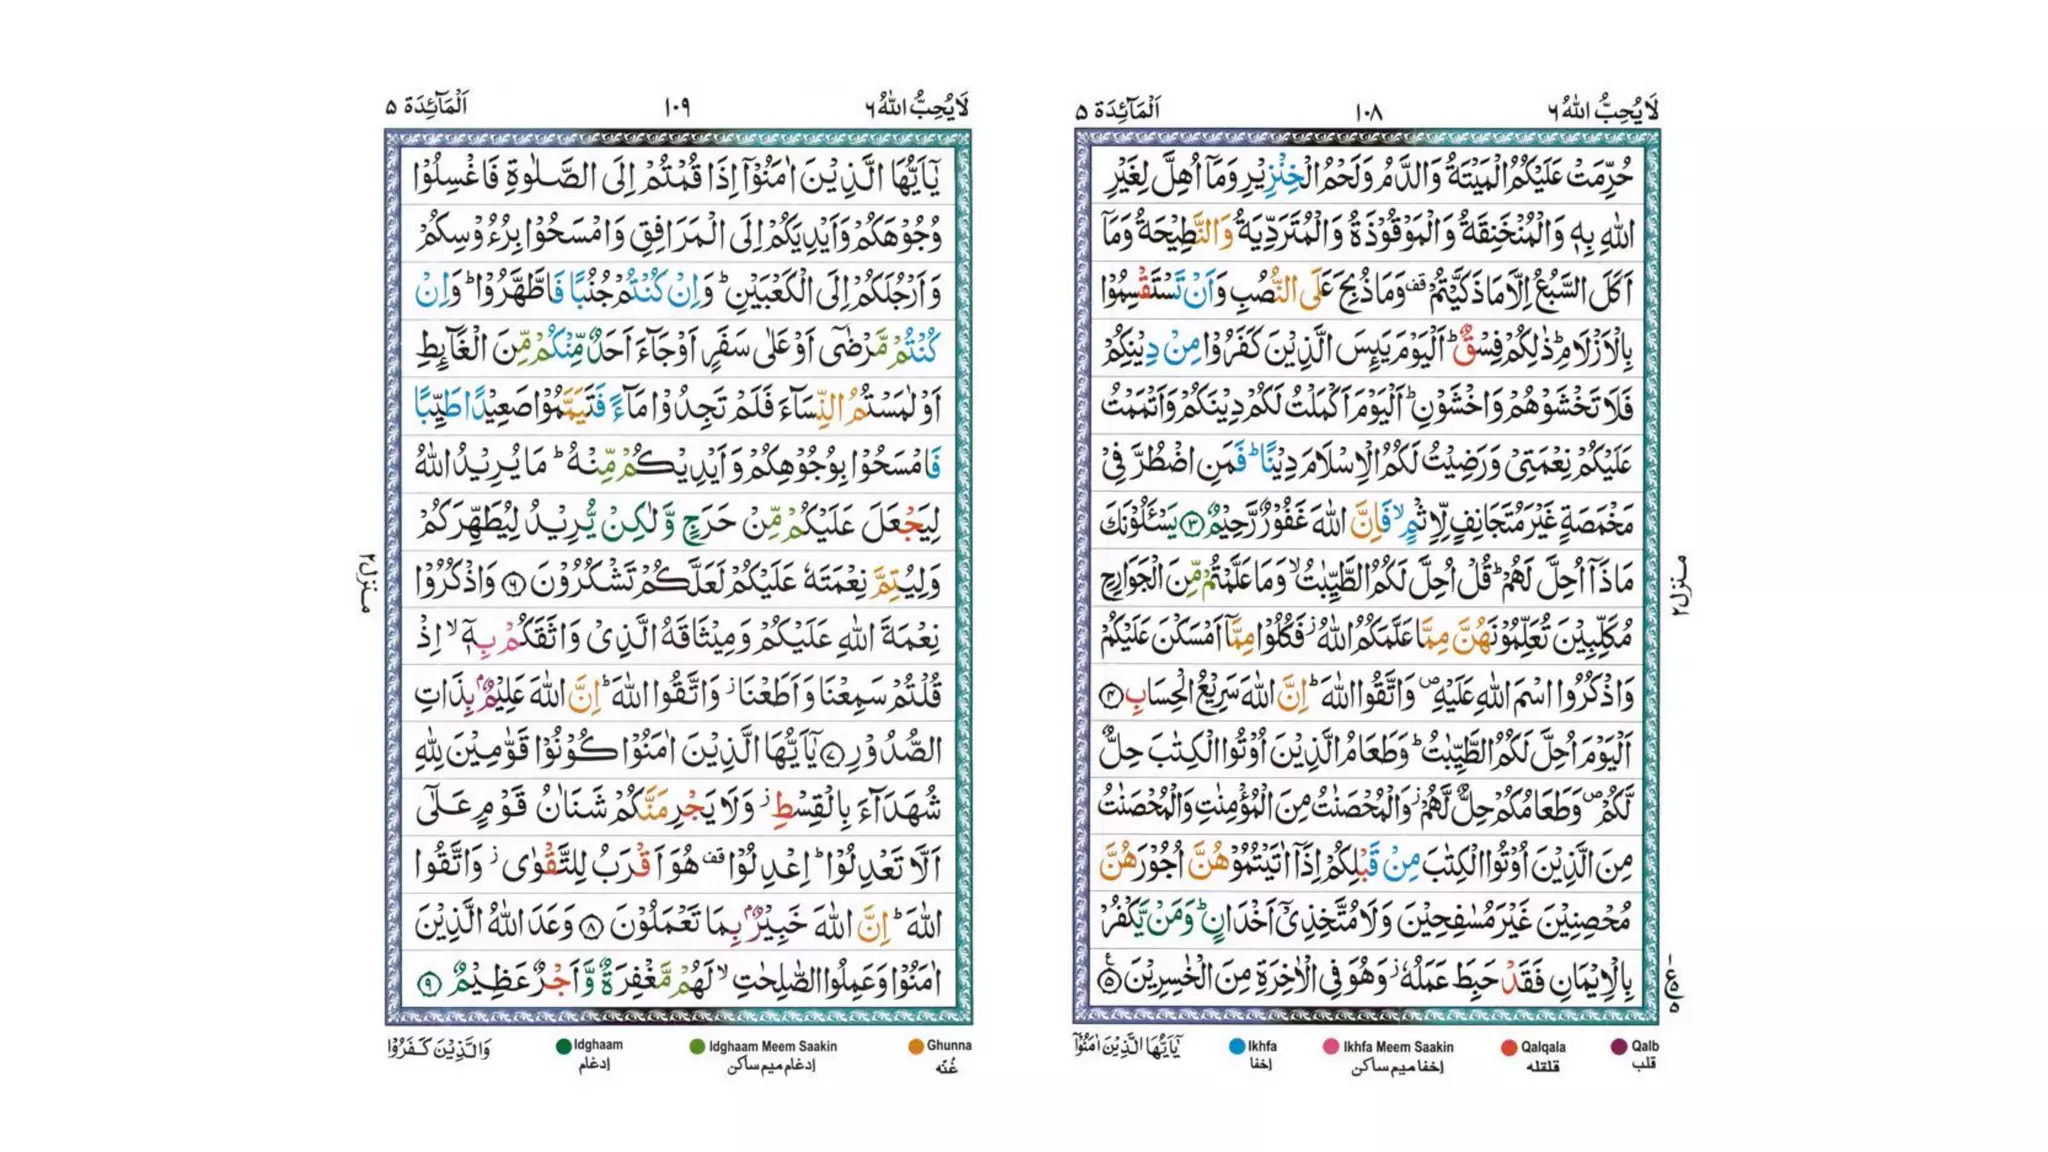 لَا يُحِبُّ اللّٰهُ ٦
١٠٨
اَلْمَآئِدَة ٥
حُرِّمَتْ عَلَيْكُمُ الْمَيْتَةُ وَالدَّمُ وَلَحْمُ الْخِنْزِيْرِ وَمَآ اُهِلَّ لِغَيْرِ
اللّٰهِ بِهٖ وَالْمُنْخَنِقَةُ وَالْمَوْقُوْذَةُ وَالْمُتَرَدِّيَةُ وَالنَّطِيْحَةُ وَمَآ
اَكَلَ السَّبُعُ اِلَّا مَا ذَكَّيْتُمْ ۫ وَمَا ذُبِحَ عَلَى النُّصُبِ وَاَنْ تَسْتَقْسِمُوْا
بِالْاَزْلَامِ ؕ ذٰلِكُمْ فِسْقٌ ؕ اَلْيَوْمَ يَئِسَ الَّذِيْنَ كَفَرُوْا مِنْ دِيْنِكُمْ
فَلَا تَخْشَوْهُمْ وَاخْشَوْنِ ؕ اَلْيَوْمَ اَكْمَلْتُ لَكُمْ دِيْنَكُمْ وَاَتْمَمْتُ
عَلَيْكُمْ نِعْمَتِيْ وَرَضِيْتُ لَكُمُ الْاِسْلَامَ دِيْنًا ؕ فَمَنِ اضْطُرَّ فِيْ
مَخْمَصَةٍ غَيْرَ مُتَجَانِفٍ لِّاِثْمٍ ۙ فَاِنَّ اللّٰهَ غَفُوْرٌ رَّحِيْمٌ ﴿٣﴾ يَسْـَٔلُوْنَكَ
مَاذَآ اُحِلَّ لَهُمْ ؕ قُلْ اُحِلَّ لَكُمُ الطَّيِّبٰتُ ۙ وَمَا عَلَّمْتُمْ مِّنَ الْجَوَارِحِ
مُكَلِّبِيْنَ تُعَلِّمُوْنَهُنَّ مِمَّا عَلَّمَكُمُ اللّٰهُ ؗ فَكُلُوْا مِمَّآ اَمْسَكْنَ عَلَيْكُمْ
وَاذْكُرُوا اسْمَ اللّٰهِ عَلَيْهِ ۪ وَاتَّقُوا اللّٰهَ ؕ اِنَّ اللّٰهَ سَرِيْعُ الْحِسَابِ ﴿٤﴾
اَلْيَوْمَ اُحِلَّ لَكُمُ الطَّيِّبٰتُ ؕ وَطَعَامُ الَّذِيْنَ اُوْتُوا الْكِتٰبَ حِلٌّ
لَّكُمْ ۪ وَطَعَامُكُمْ حِلٌّ لَّهُمْ ؗ وَالْمُحْصَنٰتُ مِنَ الْمُؤْمِنٰتِ وَالْمُحْصَنٰتُ
مِنَ الَّذِيْنَ اُوْتُوا الْكِتٰبَ مِنْ قَبْلِكُمْ اِذَآ اٰتَيْتُمُوْهُنَّ اُجُوْرَهُنَّ
مُحْصِنِيْنَ غَيْرَ مُسٰفِحِيْنَ وَلَا مُتَّخِذِيْٓ اَخْدَانٍ ؕ وَمَنْ يَّكْفُرْ
بِالْاِيْمَانِ فَقَدْ حَبِطَ عَمَلُهٗ ؗ وَهُوَ فِي الْاٰخِرَةِ مِنَ الْخٰسِرِيْنَ ﴿٥﴾
منزل ٢
ع ٥
Qalb قلب
Qalqala قلقله
Ikhfa Meem Saakin إخفا ميم ساكن
Ikhfa إخفا
يٰٓاَيُّهَا الَّذِيْنَ اٰمَنُوْٓا
لَا يُحِبُّ اللّٰهُ ٦
١٠٩
اَلْمَآئِدَة ٥
يٰٓاَيُّهَا الَّذِيْنَ اٰمَنُوْٓا اِذَا قُمْتُمْ اِلَى الصَّلٰوةِ فَاغْسِلُوْا
وُجُوْهَكُمْ وَاَيْدِيَكُمْ اِلَى الْمَرَافِقِ وَامْسَحُوْا بِرُءُوْسِكُمْ
وَاَرْجُلَكُمْ اِلَى الْكَعْبَيْنِ ؕ وَاِنْ كُنْتُمْ جُنُبًا فَاطَّهَّرُوْا ؕ وَاِنْ
كُنْتُمْ مَّرْضٰٓى اَوْ عَلٰى سَفَرٍ اَوْ جَآءَ اَحَدٌ مِّنْكُمْ مِّنَ الْغَآئِطِ
اَوْ لٰمَسْتُمُ النِّسَآءَ فَلَمْ تَجِدُوْا مَآءً فَتَيَمَّمُوْا صَعِيْدًا طَيِّبًا
فَامْسَحُوْا بِوُجُوْهِكُمْ وَاَيْدِيْكُمْ مِّنْهُ ؕ مَا يُرِيْدُ اللّٰهُ
لِيَجْعَلَ عَلَيْكُمْ مِّنْ حَرَجٍ وَّلٰكِنْ يُّرِيْدُ لِيُطَهِّرَكُمْ
وَلِيُتِمَّ نِعْمَتَهٗ عَلَيْكُمْ لَعَلَّكُمْ تَشْكُرُوْنَ ﴿٦﴾ وَاذْكُرُوْا
نِعْمَةَ اللّٰهِ عَلَيْكُمْ وَمِيْثَاقَهُ الَّذِيْ وَاثَقَكُمْ بِهٖٓ ۙ اِذْ
قُلْتُمْ سَمِعْنَا وَاَطَعْنَا ؗ وَاتَّقُوا اللّٰهَ ؕ اِنَّ اللّٰهَ عَلِيْمٌۢ بِذَاتِ
الصُّدُوْرِ ﴿٧﴾ يٰٓاَيُّهَا الَّذِيْنَ اٰمَنُوْا كُوْنُوْا قَوّٰمِيْنَ لِلّٰهِ
شُهَدَآءَ بِالْقِسْطِ ؗ وَلَا يَجْرِمَنَّكُمْ شَنَاٰنُ قَوْمٍ عَلٰٓى
اَلَّا تَعْدِلُوْا ؕ اِعْدِلُوْا ۫ هُوَ اَقْرَبُ لِلتَّقْوٰى ؗ وَاتَّقُوا
اللّٰهَ ؕ اِنَّ اللّٰهَ خَبِيْرٌۢ بِمَا تَعْمَلُوْنَ ﴿٨﴾ وَعَدَ اللّٰهُ الَّذِيْنَ
اٰمَنُوْا وَعَمِلُوا الصّٰلِحٰتِ ۙ لَهُمْ مَّغْفِرَةٌ وَّاَجْرٌ عَظِيْمٌ ﴿٩﴾
منزل ٢
Ghunna غُنّه
Idghaam Meem Saakin إدغام ميم ساكن
Idghaam إدغام
وَالَّذِيْنَ كَفَرُوْا